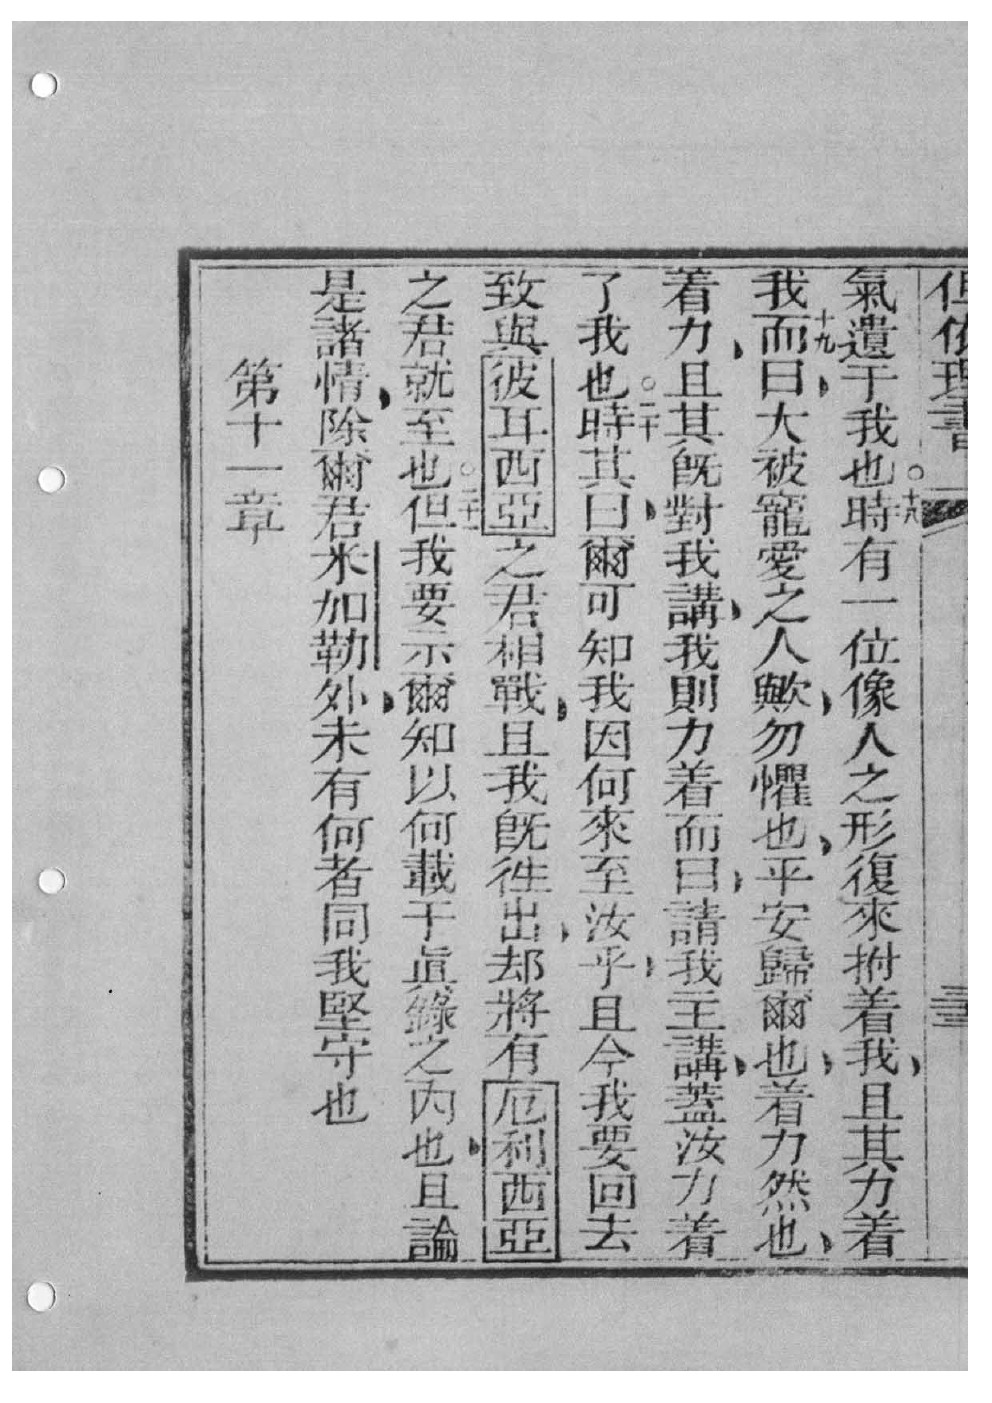 但依理書
三
氣遺于我也。十八時有一位像人之形復來拊着我、且其力着
我十九而曰、大被寵愛之人歟、勿懼也、平安歸爾也、着力然也、
着力、且其旣對我講、我則力着而曰、請我主講、蓋汝力着
了我也。二十時其曰、爾可知我因何來至汝乎、且今我要回去
致與彼耳西亞之君相戰、且我旣徃出、却將有厄利西亞
之君就至也。二十一但我要示爾知以何載于眞錄之內也、且論
是諸情、除爾君米加勒外、未有何者同我堅守也
第十一章